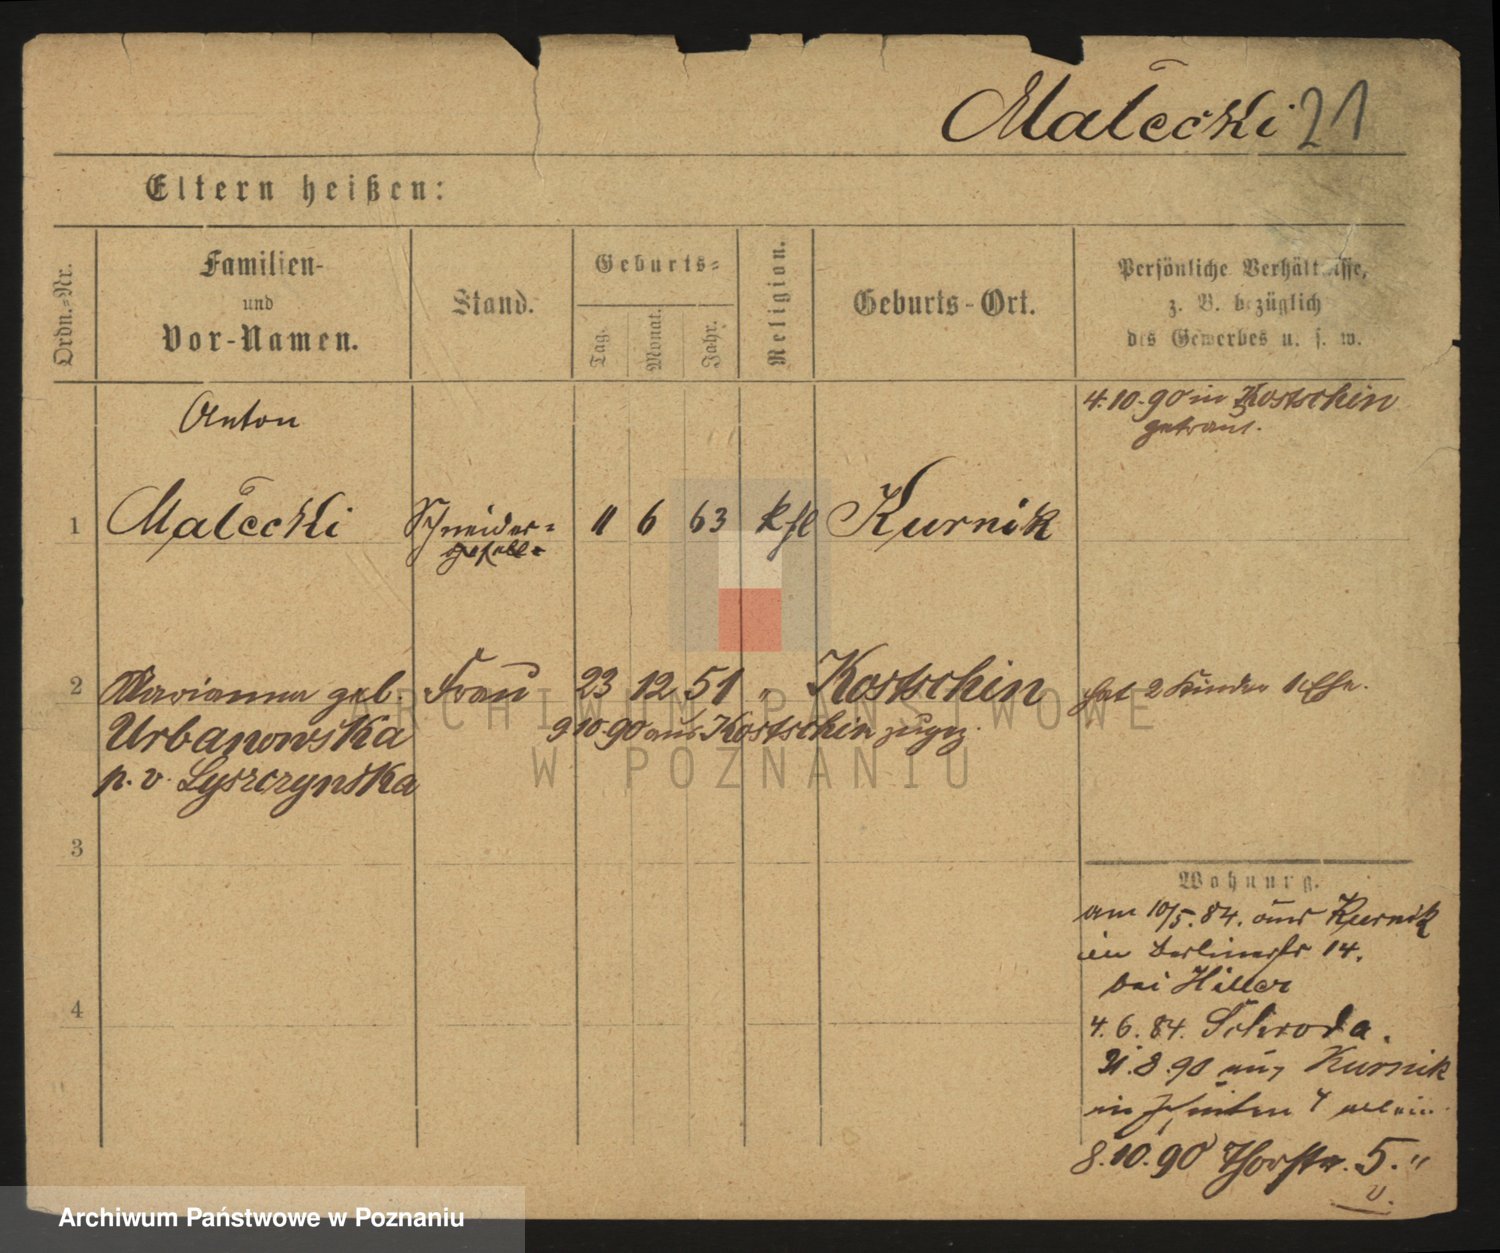 Małecki 21
Eltern heißen:
Ordn.-Nr.
Familien-
und
Vor-Namen.
Stand.
Geburts-
Tag.
Monat.
Jahr.
Religion.
Geburts-Ort.
Persönliche Verhältnisse,
z. B. bezüglich
des Gewerbes u. s. w.
4.10.90 in Kostschin
getraut.
Anton
1 Małecki Schneider- 11 6 63 kthl Kurnik
geselle
2 Marianna geb Frau 23 12 51 " Kostschin hat 2 Kinder 1 Ehe.
Urbanowska 9 10 90 aus Kostschin zugz.
p. v. Lyszczynska
3
4
Wohnung.
am 10/5. 84. aus Kurnik
in Berlinerstr 14.
bei Hiller
4. 6. 84. Schroda.
31. 8. 90 aus Kurnik
in 4 allein
8. 10. 90 Thorstr. 5. "
v.
ARCHIWUM PAŃSTWOWE
W POZNANIU
Archiwum Państwowe w Poznaniu